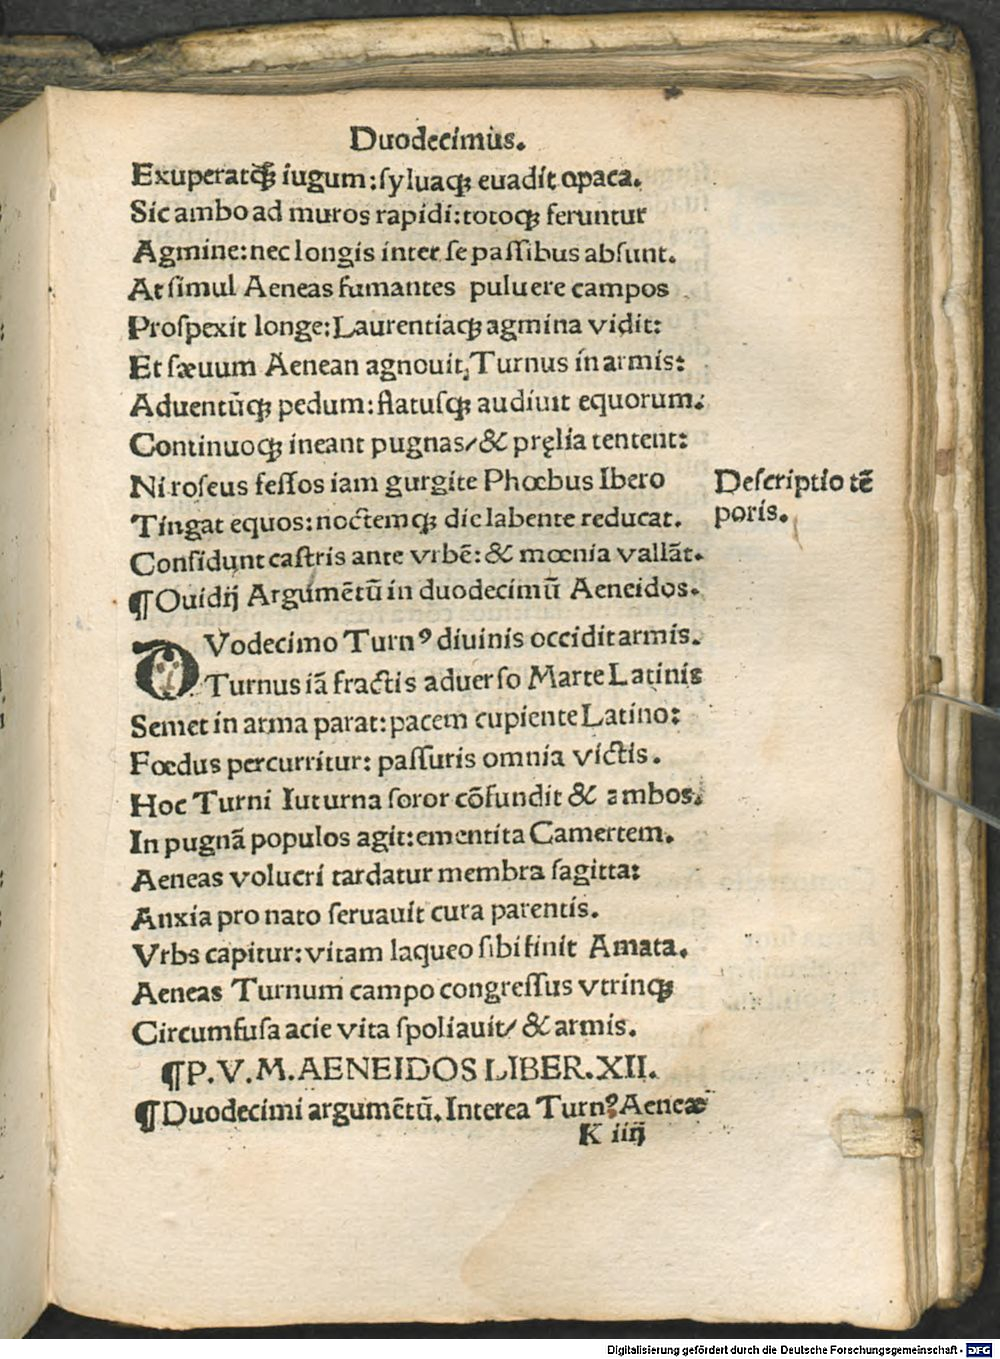 Duodecimus.
Exuperatq̃ꝫ iugum:ſyluaqꝫ euadit opaca.
Sic ambo ad muros rapidi:totoqꝫ feruntur
Agmine:nec longis inter ſe paſſibus abſunt.
At ſimul Aeneas fumantes puluere campos
Proſpexit longe:Laurentiaqꝫ agmina vidit:
Et ſæuum Aenean agnouit,Turnus in armis:
Aduentūqꝫ pedum:flatuſqꝫ audiuit equorum.
Continuoqꝫ ineant pugnas/& pręlia tentent:
Ni roſeus feſſos iam gurgite Phœbus Ibero
Tingat equos:noctemqꝫ die labente reducat.
Conſidunt caſtris ante vrbē:& mœnia vallāt.
Deſcriptio tē
poris.
¶Ouidij Argumētū in duodecimū Aeneidos.
DVodecimo Turnꝰ diuinis occidit armis.
Turnus iā fractis aduerſo Marte Latinis
Semet in arma parat:pacem cupiente Latino:
Fœdus percurritur: paſſuris omnia victis.
Hoc Turni Iuturna ſoror cōfundit & ambos.
In pugnā populos agit:ementita Camertem.
Aeneas volucri tardatur membra ſagitta:
Anxia pro nato ſeruauit cura parentis.
Vrbs capitur:vitam laqueo ſibi finit Amata.
Aeneas Turnum campo congreſſus vtrinqꝫ
Circumfuſa acie vita ſpoliauit/ & armis.
¶P.V.M.AENEIDOS LIBER.XII.
¶Duodecimi argumētū.Interea Turnꝰ Aeneæ
K iiij
Digitalisierung gefördert durch die Deutsche Forschungsgemeinschaft - DFG